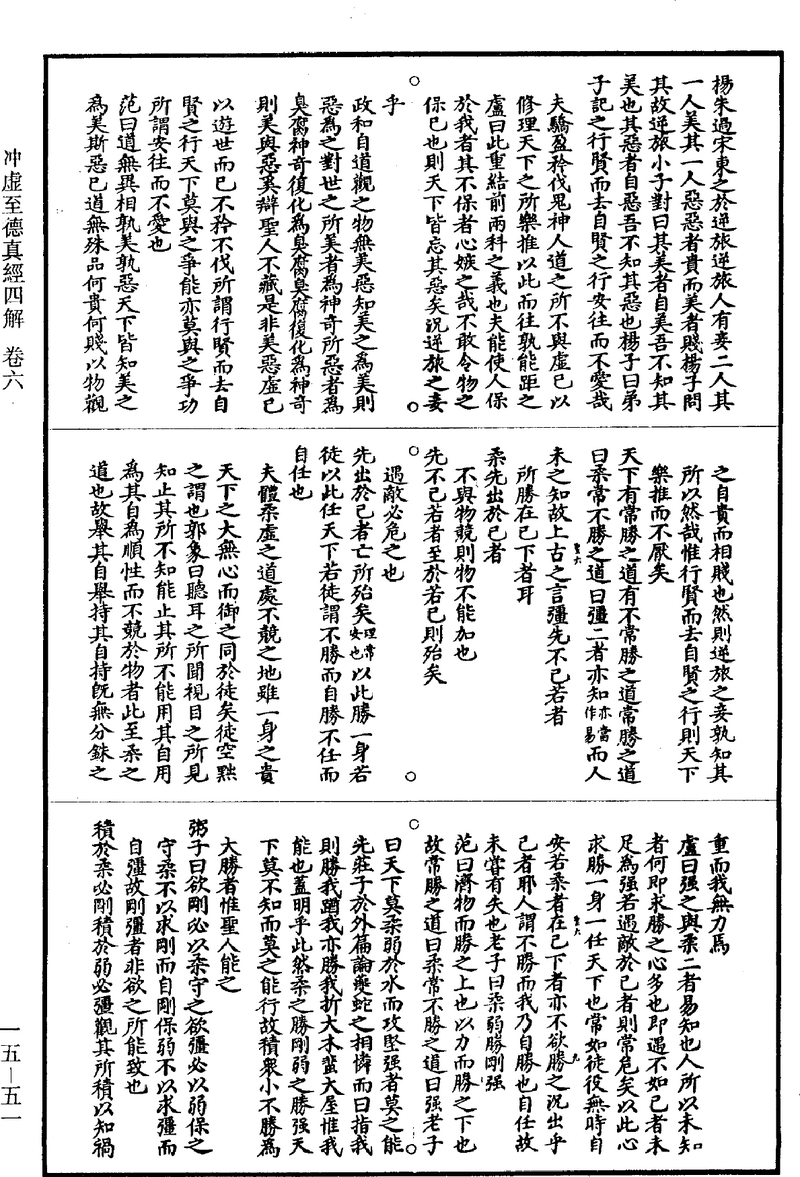 楊朱過宋東之於逆旅逆旅人有妾二人其
一人美其一人惡惡者貴而美者賤楊子問
其故逆旅小子對曰其美者自美吾不知其
美也其惡者自惡吾不知其惡也楊子曰弟
子記之行賢而去自賢之行安往而不愛哉
夫驕盈矜伐鬼神人道之所不與虛已以
修理天下之所樂推以此而往孰能距之
盧曰此重結前兩科之義也夫能使人保
於我者其不保者心嫉之哉不敢令物之
保已也則天下皆忘其惡矣況逆旅之妾
乎
政和自道觀之物無美惡知美之為美則
惡為之對世之所美者為神奇所惡者為
臭腐神奇復化為臭腐臭腐復化為神奇
則美與惡奚辯聖人不藏是非美惡虛已
以遊世而已不矜不伐所謂行賢而去自
賢之行天下莫與之爭能亦莫與之爭功
所謂安往而不愛也
范曰道無異相孰美孰惡天下皆知美之
為美斯惡已道無殊品何貴何賤以物觀
之自貴而相賤也然則逆旅之妾孰知其
所以然哉惟行賢而去自賢之行則天下
樂推而不厭矣
天下有常勝之道有不常勝之道常勝之道
曰柔常不勝之道曰彊二者亦知亦當作易而人
未之知故上古之言彊先不已若者
所勝在已下者耳
柔先出於已者
不與物競則物不能加也
先不已若者至於若已則殆矣
遇敵必危之也
先出於已者亡所殆矣理常安也以此勝一身若
徒以此任天下若徒謂不勝而自勝不任而
自任也
夫體柔虛之道處不競之地雖一身之貴
天下之大無心而御之同於徒矣徒空黙
之謂也郭象曰聽耳之所聞視目之所見
知止其所不知能止其所不能用其自用
為其自為順性而不競於物者此至柔之
道也故舉其自舉持其自持既無分銖之
重而我無力焉
盧曰强之與柔二者易知也人所以未知
者何即求勝之心多也即遇不如已者未
足為强若遇敵於已者則常危矣以此心
求勝一身一任天下也常如徒役無時自
安若柔者在已下者亦不欲勝之況出乎
已者耶人謂不勝而我乃自勝也自任故
未嘗有失也老子曰柔弱勝剛强
范曰濟物而勝之上也以力而勝之下也
故常勝之道曰柔常不勝之道曰强老子
曰天下莫柔弱於水而攻堅强者莫之能
先莊子於外篇論夔蛇之相憐而曰指我
則勝我䠓我亦勝我折大木蜚大屋惟我
能也蓋明乎此然柔之勝剛弱之勝强天
下莫不知而莫之能行故積衆小不勝為
大勝者惟聖人能之
粥子曰欲剛必以柔守之欲彊必以弱保之
守柔不以求剛而自剛保弱不以求彊而
自彊故剛彊者非欲之所能致也
積於柔必剛積於弱必彊觀其所積以知禍
冲虛至德真經四解 卷六
一五—五一